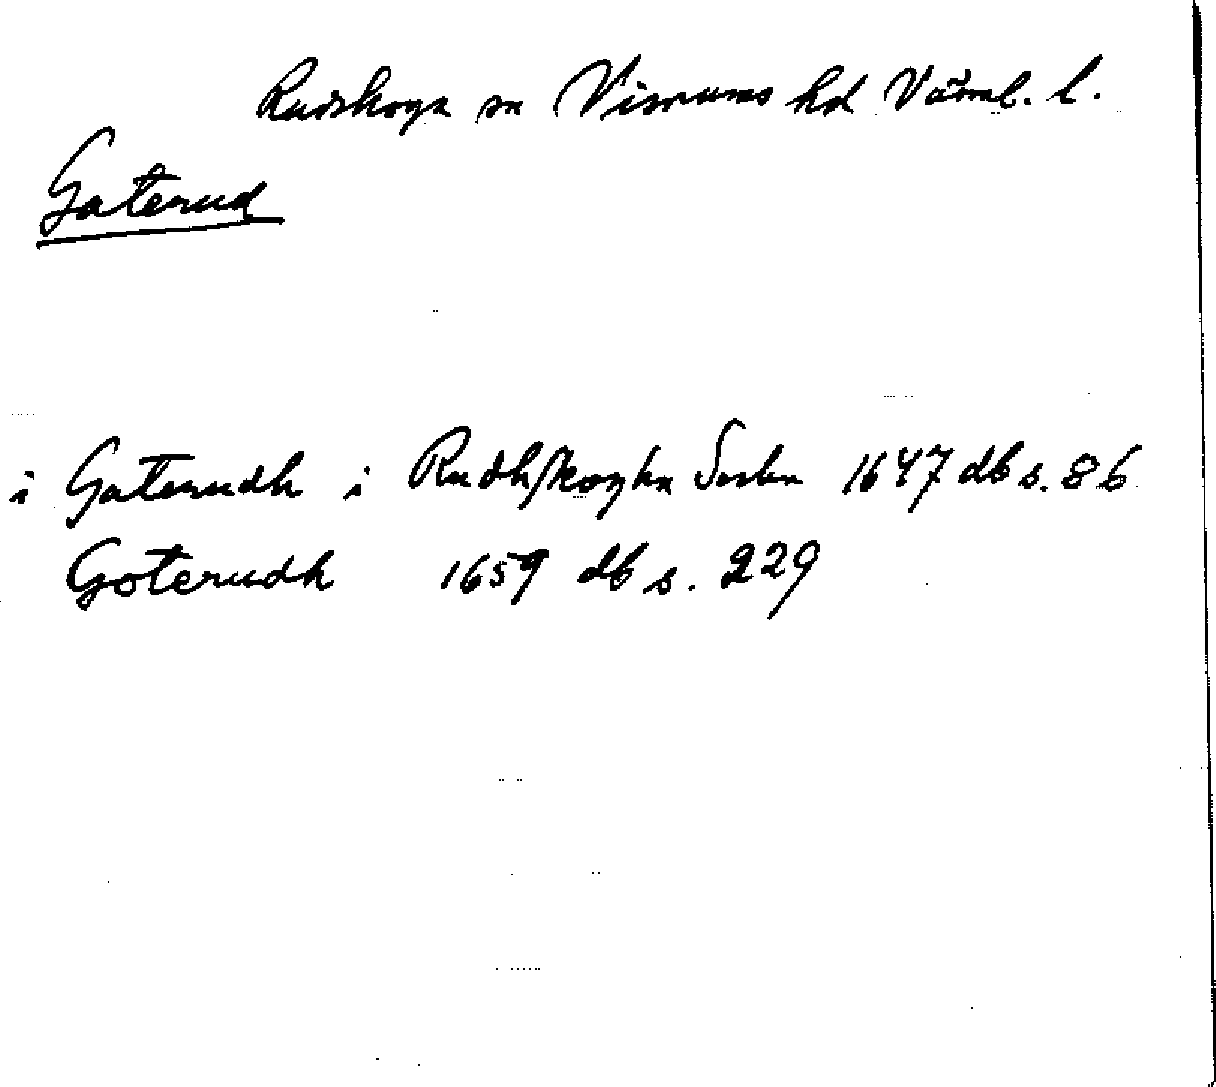 Rudskoga sn Visnums hd Värml. l.
Gaterud
i Gaterudh i Rudhskogha Sockn 1647 db s. 86
Goterudh 1659 db s. 229